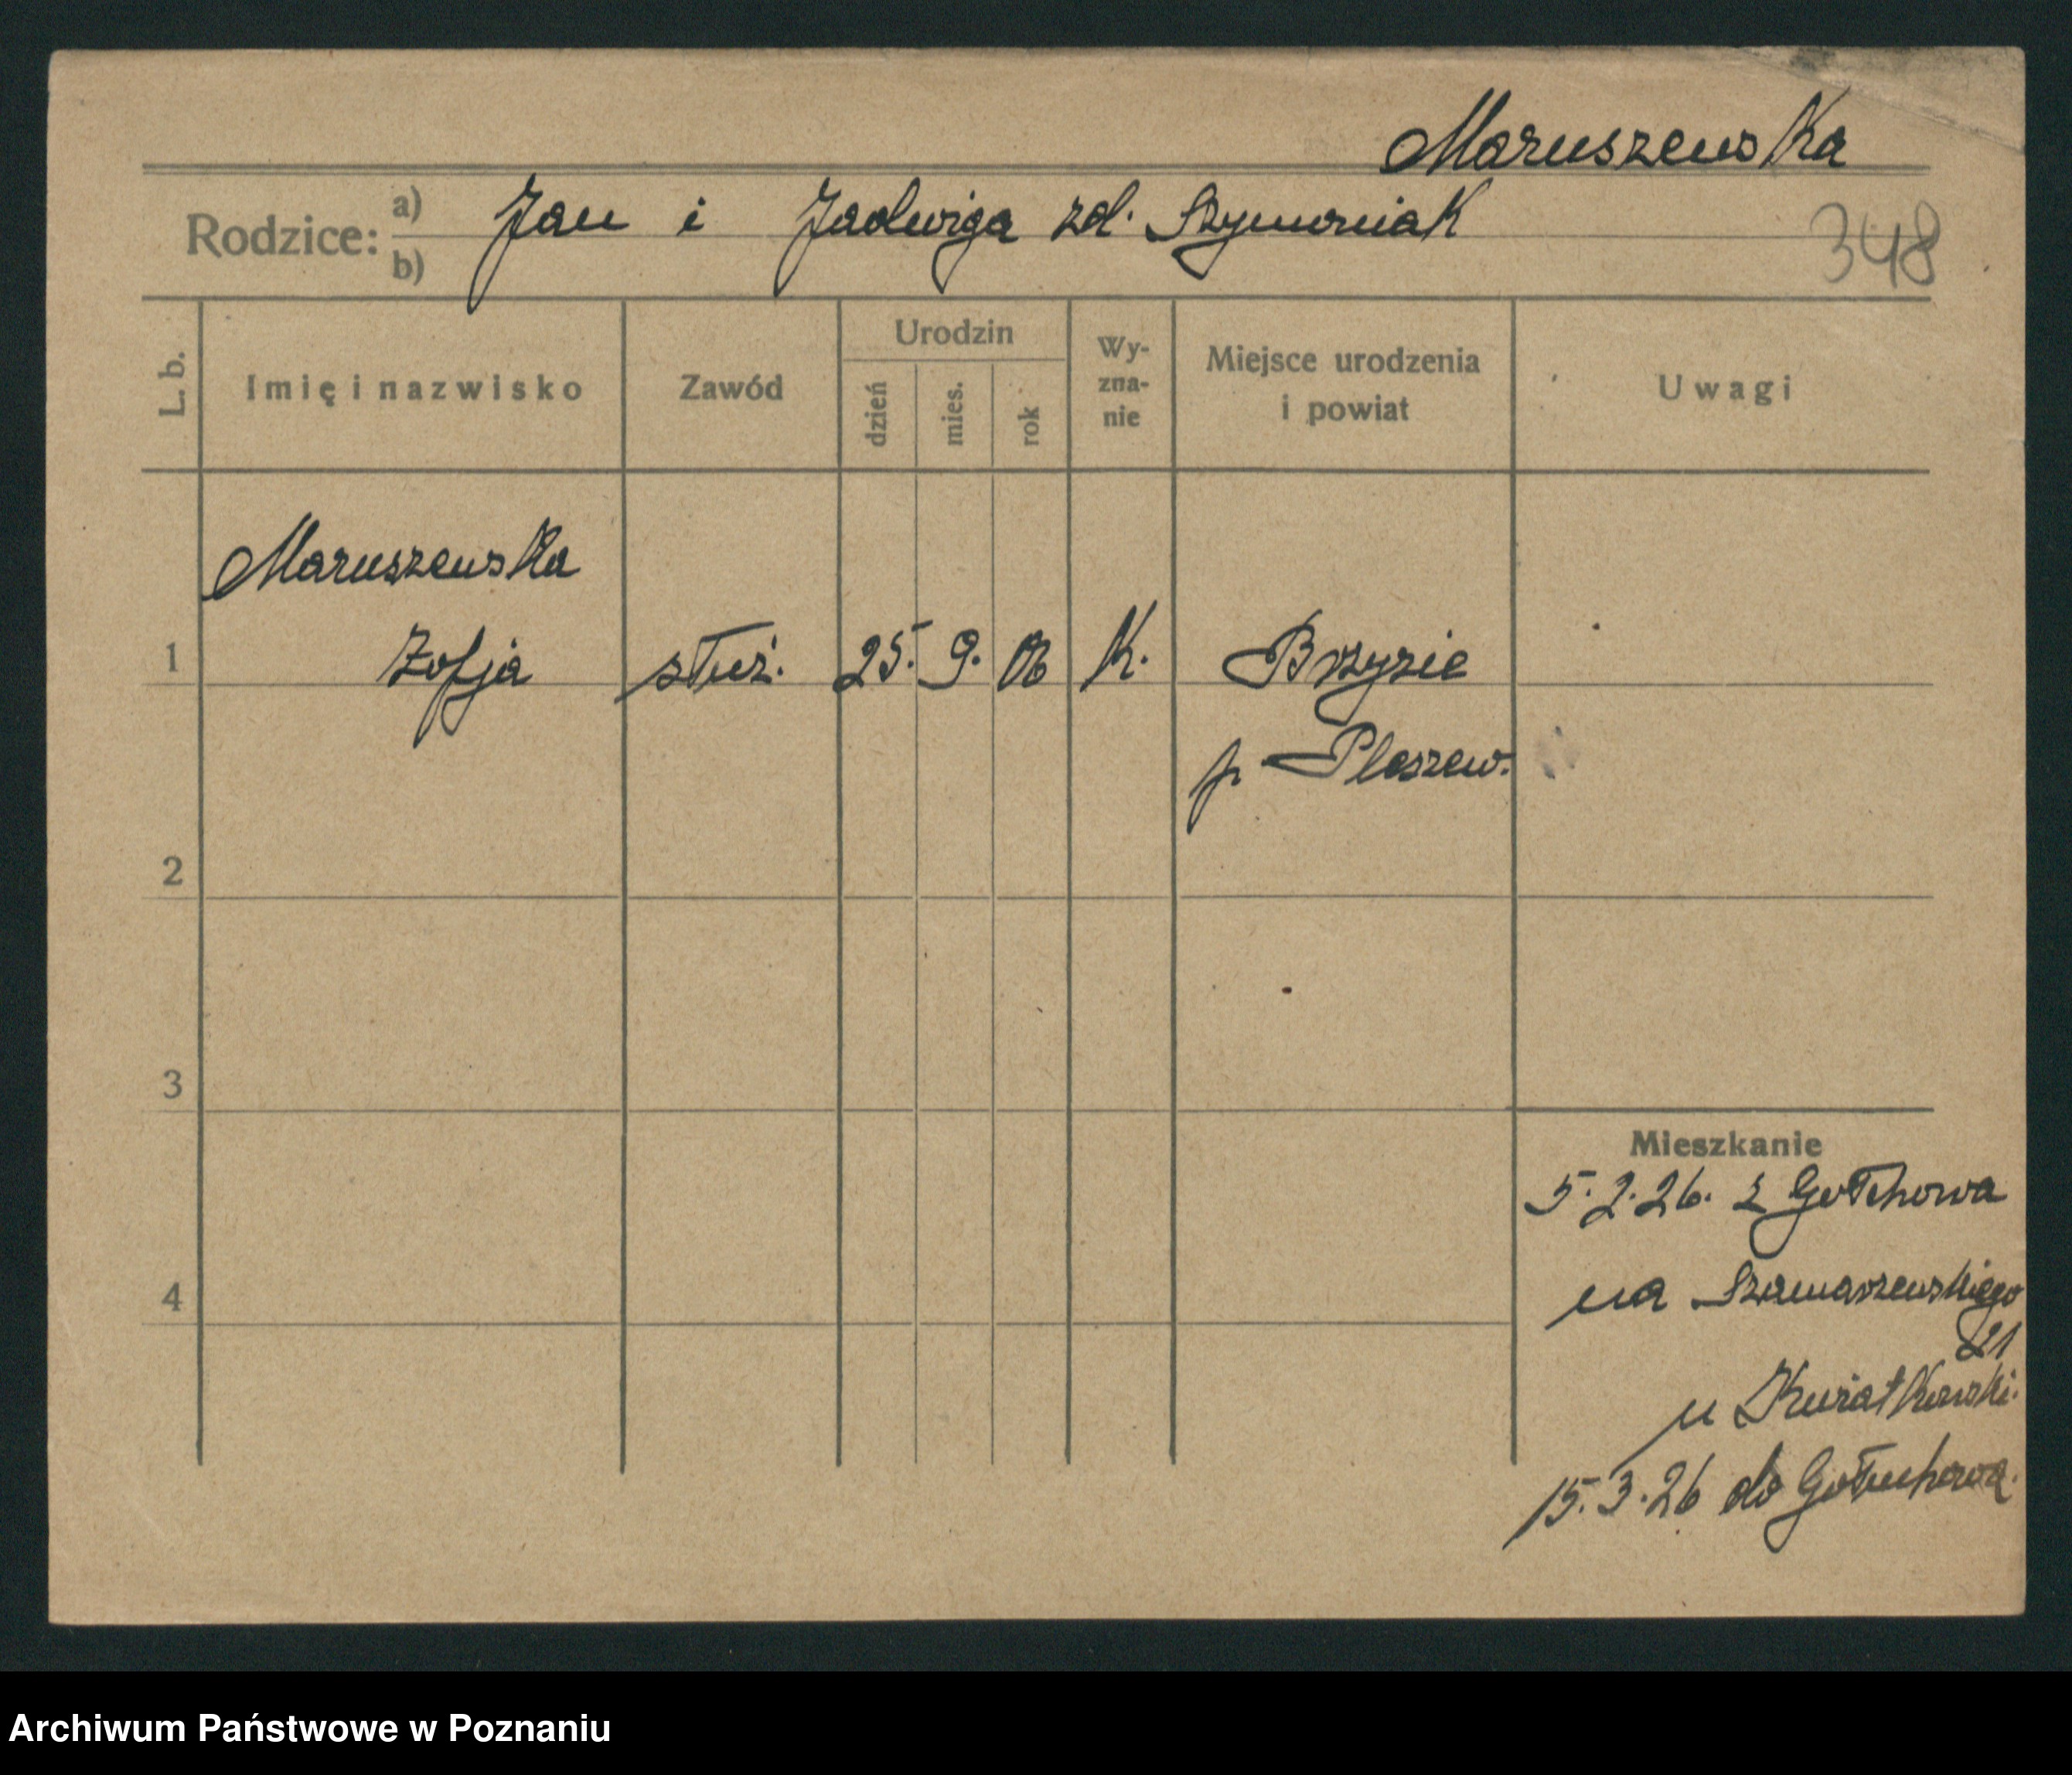 Maruszewska
Rodzice: a) b) Jan i Jadwiga zd. Szymoniak
348
L. b. Imię i nazwisko Zawód Urodzin dzień mies. rok Wy-zna-nie Miejsce urodzenia i powiat Uwagi
Maruszewska
1 Zofja służ. 25. 9. 06 K. Brzyzie
p. Pleszew.
2
3
Mieszkanie
5.2.26. z Gołchowa
4 na Szamarzewskiego
21
u Kwiatkowski.
15.3.26 do Gołuchowa.
Archiwum Państwowe w Poznaniu